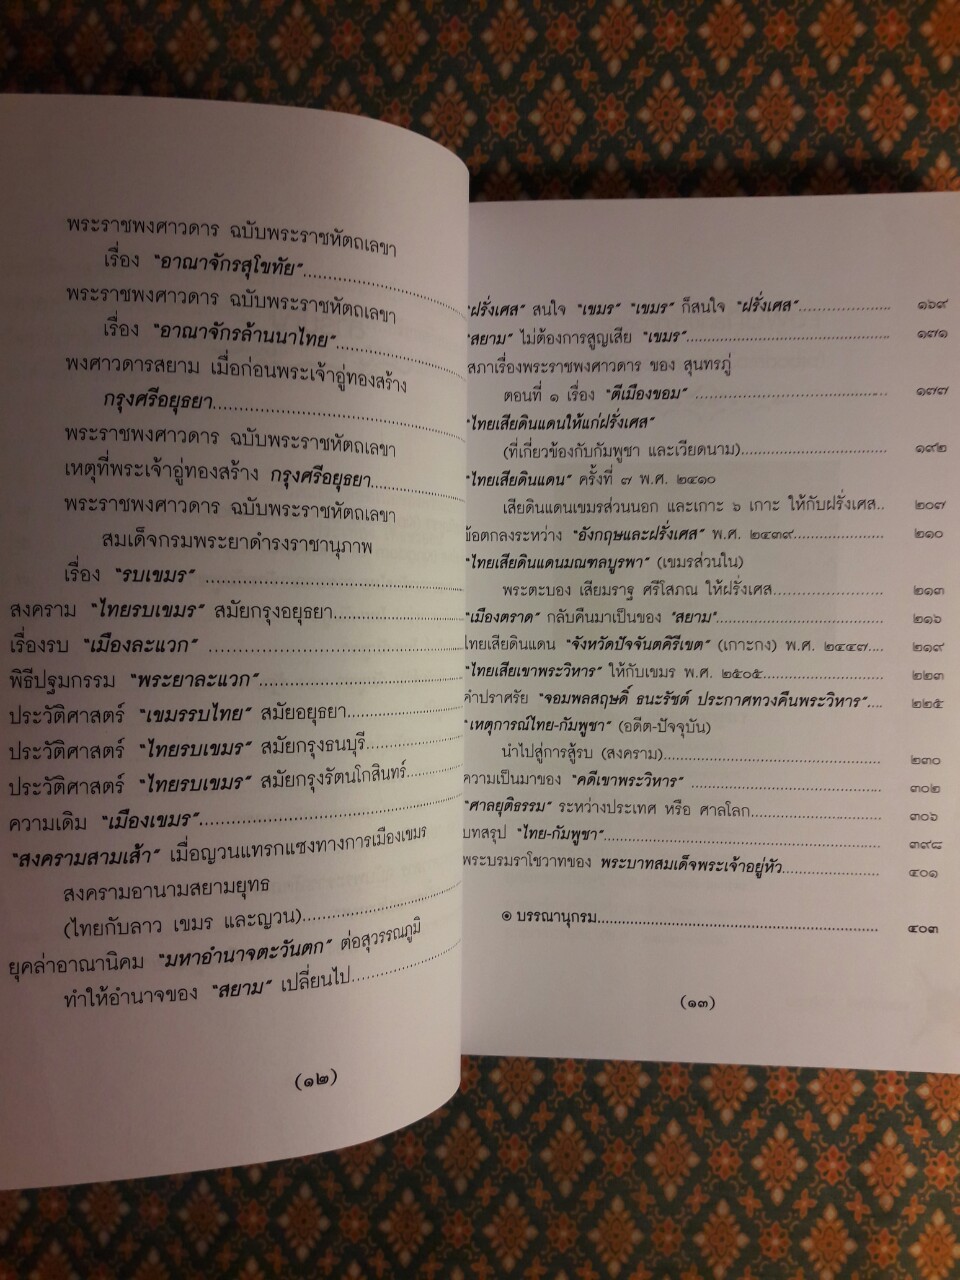 พระราชพงศาวดาร ฉบับพระราชหัตถเลขา
เรื่อง "อาณาจักรสุโขทัย"........................
พระราชพงศาวดาร ฉบับพระราชหัตถเลขา
เรื่อง "อาณาจักรล้านนาไทย"..................
พงศาวดารสยาม เมื่อก่อนพระเจ้าอู่ทองสร้าง
กรุงศรีอยุธยา........................................
พระราชพงศาวดาร ฉบับพระราชหัตถเลขา
เหตุที่พระเจ้าอู่ทองสร้าง กรุงศรีอยุธยา..................
พระราชพงศาวดาร ฉบับพระราชหัตถเลขา
สมเด็จกรมพระยาดำรงราชานุภาพ
เรื่อง "รบเขมร" ........................................
สงคราม "ไทยรบเขมร" สมัยกรุงอยุธยา........................
เรื่องรบ "เมืองละแวก" ........................................
พิธีปฐมกรรม "พระยาละแวก"..................................
ประวัติศาสตร์ "เขมรรบไทย" สมัยอยุธยา....................
ประวัติศาสตร์ "ไทยรบเขมร" สมัยกรุงธนบุรี..................
ประวัติศาสตร์ "ไทยรบเขมร" สมัยกรุงรัตนโกสินทร์...........
ความเดิม "เมืองเขมร"........................................
"สงครามสามเส้า" เมื่อญวนแทรกแซงทางการเมืองเขมร
สงครามอานามสยามยุทธ
(ไทยกับลาว เขมร และญวน)........................
ยุคล่าอาณานิคม "มหาอำนาจตะวันตก" ต่อสุวรรณภูมิ
ทำให้อำนาจของ "สยาม" เปลี่ยนไป..................
(๑๒)
"ฝรั่งเศส" สนใจ "เขมร" "เขมร" ก็สนใจ "ฝรั่งเศส"..................... ๑๖๙
"สยาม" ไม่ต้องการสูญเสีย "เขมร"........................................ ๑๗๑
สภาเรื่องพระราชพงศาวดาร ของ สุนทรภู่
ตอนที่ ๑ เรื่อง "ตีเมืองขอม" ........................................ ๑๗๗
"ไทยเสียดินแดนให้แก่ฝรั่งเศส"
(ที่เกี่ยวข้องกับกัมพูชา และเวียดนาม)............................ ๑๙๒
"ไทยเสียดินแดน" ครั้งที่ ๗ พ.ศ. ๒๔๑๐
เสียดินแดนเขมรส่วนนอก และเกาะ ๖ เกาะ ให้กับฝรั่งเศส.. ๒๐๗
ข้อตกลงระหว่าง "อังกฤษและฝรั่งเศส" พ.ศ. ๒๔๓๙..................... ๒๑๐
"ไทยเสียดินแดนมณฑลบูรพา" (เขมรส่วนใน)
พระตะบอง เสียมราฐ ศรีโสภณ ให้ฝรั่งเศส..................... ๒๑๓
"เมืองตราด" กลับคืนมาเป็นของ "สยาม"................................ ๒๑๖
ไทยเสียดินแดน "จังหวัดปัจจันตคิรีเขต" (เกาะกง) พ.ศ. ๒๔๔๗.... ๒๑๙
"ไทยเสียเขาพระวิหาร" ให้กับเขมร พ.ศ. ๒๕๐๕........................ ๒๒๓
คำปราศรัย "จอมพลสฤษดิ์ ธนะรัชต์ ประกาศทวงคืนพระวิหาร".... ๒๒๕
"เหตุการณ์ไทย-กัมพูชา" (อดีต-ปัจจุบัน)
นำไปสู่การสู้รบ (สงคราม)........................................ ๒๓๐
ความเป็นมาของ "คดีเขาพระวิหาร" ........................................ ๓๐๒
"ศาลยุติธรรม" ระหว่างประเทศ หรือ ศาลโลก........................ ๓๐๖
บทสรุป "ไทย-กัมพูชา"........................................ ๓๙๘
พระบรมราโชวาทของ พระบาทสมเด็จพระเจ้าอยู่หัว..................... ๔๐๑
๏ บรรณานุกรม........................................ ๔๐๓
(๑๓)